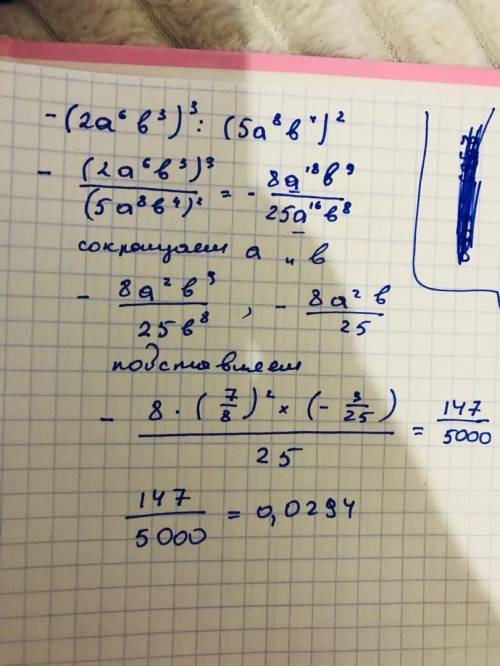 -(2a⁶b³)³ : (5a⁸b⁴)²
- (2a⁶b³)³/(5a⁸b⁴)² = - 8a¹⁸b⁹/25a¹⁶b⁸
сокращаем a и b
- 8a²b⁹/25b⁸ , - 8a²b/25
подставляем
- 8 · (7/8)² × (- 3/25)/25 = 147/5000
147/5000 = 0,0294